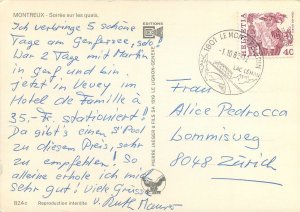 MONTREUX - Soirée sur les quais.
Ich verbringe 5 schöne
Tage am Genfersee, d.h.
War 2 Tage mit Martin
in Genf und bin
jetzt in Vevey im
Hotel de Famille à
35.- Fr. stationiert!
Da gibt's einen S'Pool
zu diesem Preis, sehr
zu empfehlen! So
alleine erhole ich mich
sehr gut! Viele Grüsse
v. Ruth Maurer
B2A c Reproduction interdite
EDITIONS
1801 LE MONT
-1.10.8
LAC LEMAN
HELVETIA
40
Frau
Alice Pedrocca
Lommisweg
8048 Zürich